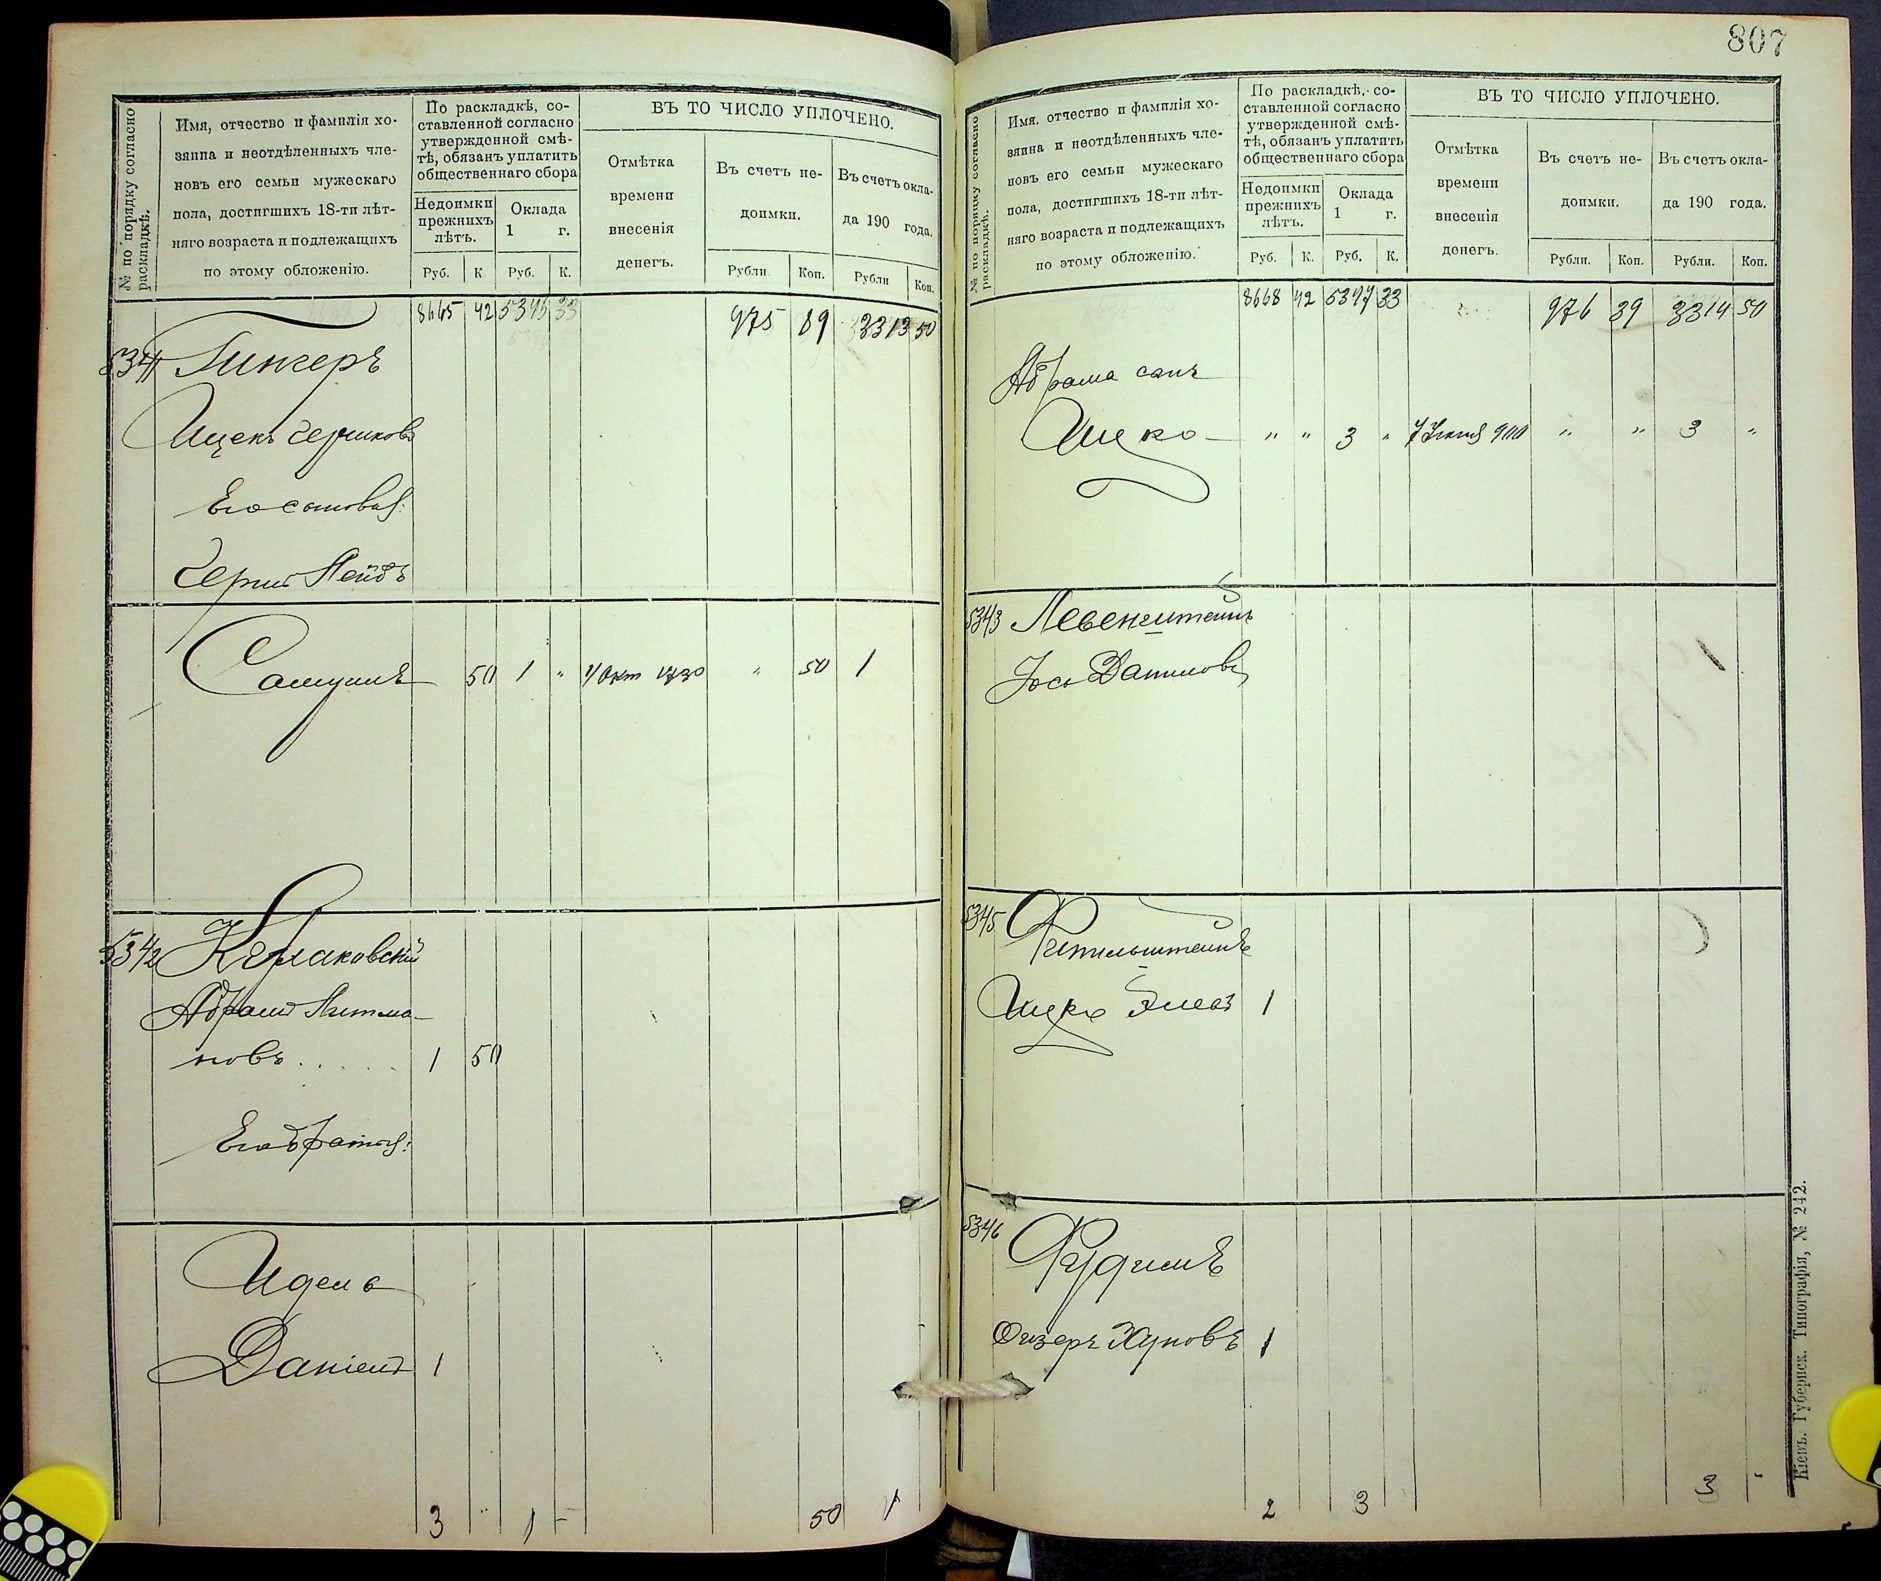 № по порядку согласно раскладкѣ.
Имя, отчество и фамилія хо-
зяина и неотдѣленныхъ чле-
новъ его семьи мужескаго
пола, достигшихъ 18-ти лѣт-
няго возраста и подлежащихъ
по этому обложенію.
По раскладкѣ, со-
ставленной согласно
утвержденной смѣ-
тѣ, обязанъ уплатить
общественнаго сбора
Недоимки
прежнихъ
лѣтъ.
Оклада
1 г.
Руб. К. Руб. К.
ВЪ ТО ЧИСЛО УПЛОЧЕНО.
Отмѣтка
времени
внесенія
денегъ.
Въ счетъ не-
доимки.
Въ счетъ окла-
да 190 года.
Рубли Коп. Рубли Коп.
8665 42 5346 33 975 89 3313 50
5341 Гингеръ
Ицекъ Гершковъ
Его сыновья:
Гершъ Лейбъ
Самуилъ 50 1 " " 50 1
5342
Абрамъ
новъ..... 1 50
Его братья:
Идель
Даніелъ 1
3 1 50 1
807
№ по порядку согласно раскладкѣ.
Имя, отчество и фамилія хо-
зяина и неотдѣленныхъ чле-
новъ его семьи мужескаго
пола, достигшихъ 18-ти лѣт-
няго возраста и подлежащихъ
по этому обложенію.
По раскладкѣ, со-
ставленной согласно
утвержденной смѣ-
тѣ, обязанъ уплатить
общественнаго сбора
Недоимки
прежнихъ
лѣтъ.
Оклада
1 г.
Руб. К. Руб. К.
ВЪ ТО ЧИСЛО УПЛОЧЕНО.
Отмѣтка
времени
внесенія
денегъ.
Въ счетъ не-
доимки.
Въ счетъ окла-
да 190 года.
Рубли. Коп. Рубли. Коп.
8668 42 5347 33 976 39 3314 50
Абрама сынъ
Ицко " " 3 " 900 " " 3 "
5343 Левенштейнъ
Іось Даниловъ
5345 Фительштейнъ
Ицко 1
5346 Рудинъ
1
2 3 3
Кіевъ. Губернск. Типографія, № 242.